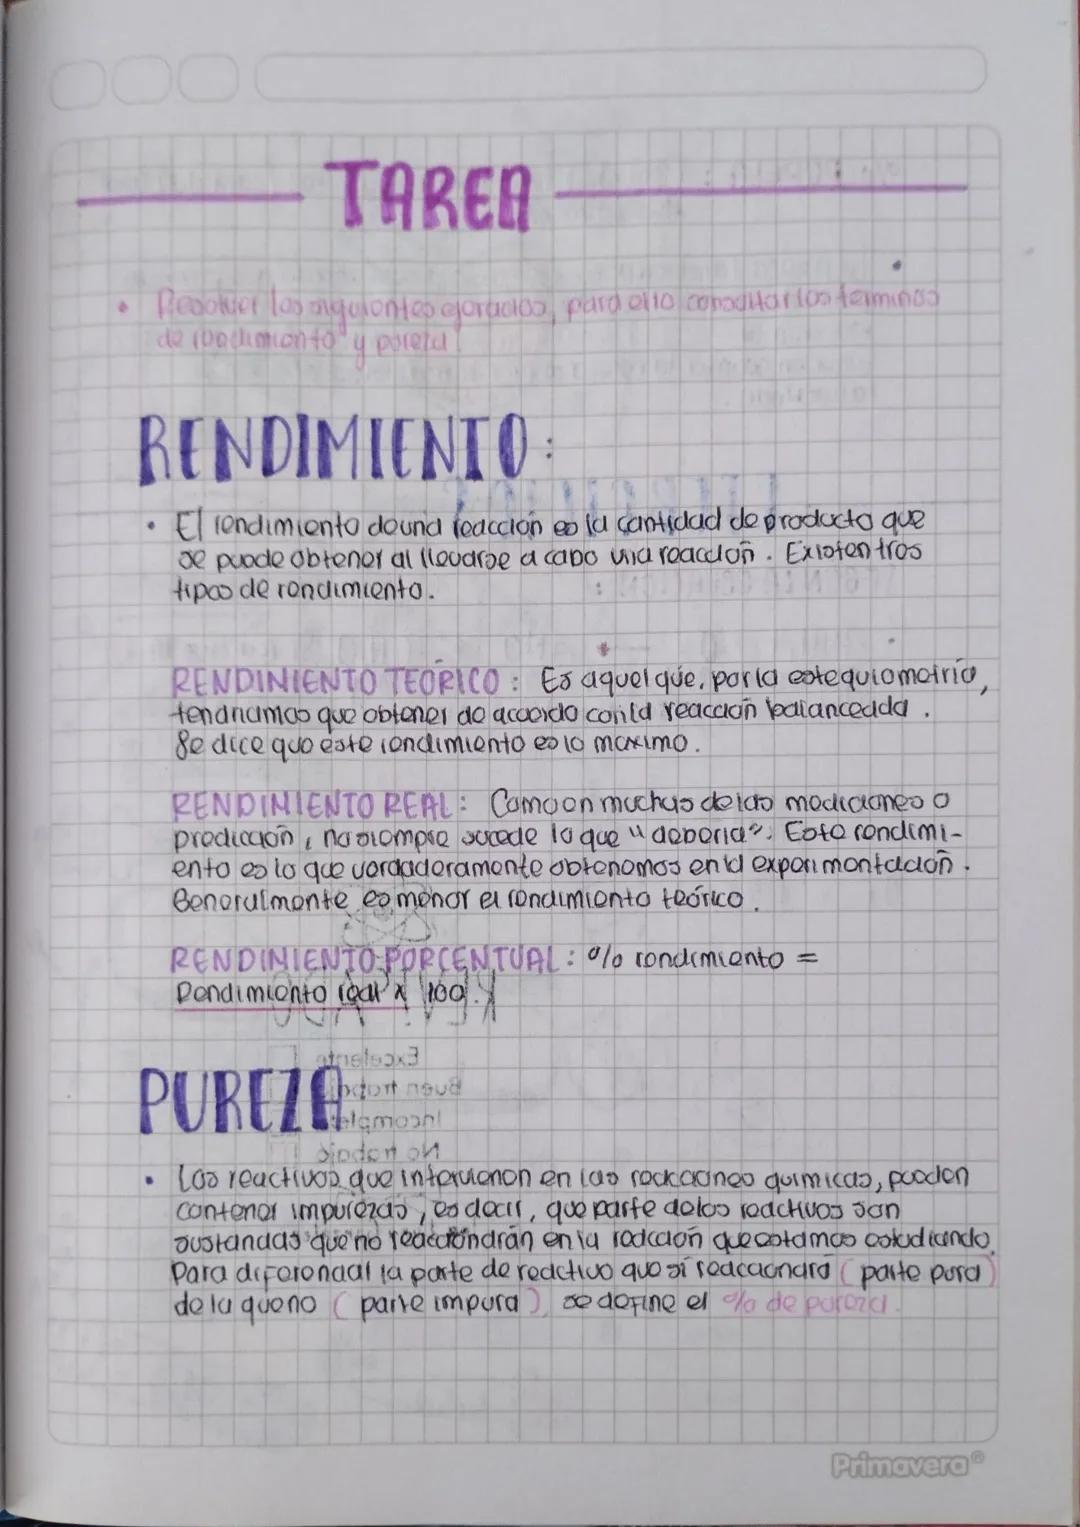 TAREA
• Resolver los siguientes ejercicios, para ello consultar los terminos
de rendimiento y pureza.
RENDIMIENTO:
• El rendimiento de una reacción es la cantidad de producto que
se puede obtener al llevarse a cabo una reacción. Existen tres
tipos de rendimiento.
RENDINIENTO TEÓRICO: Es aquel que, por la estequiometría,
tendriamos que obtener de acuerdo con la reacción balanceada.
Se dice que este rendimiento es lo maximo.
RENDINIENTO REAL: Como en muchas de las mediciones o
predicción, no siempre sucede lo que "deberia". Este rendimi-
ento es lo que verdaderamente obtenemos en la experimentación.
Generalmente es menor el rendimiento teórico.
RENDINIENTO PORCENTUAL: % rendimiento =
Rendimiento real x 100.
Excelente
Buen trabajo
Incompleto
No trabajo
PUREZA
• Los reactivos que intervienen en las reacciones quimicas, pueden
contener impurezas, es decir, que parte de los reactivos son
sustancias que no reaccióndrán en la reacción que estamos estudiando.
Para diferenciar la parte de reactivo que sí reaccionará (parte pura)
de la que no (parte impura), se define el % de pureza.
Primavera®